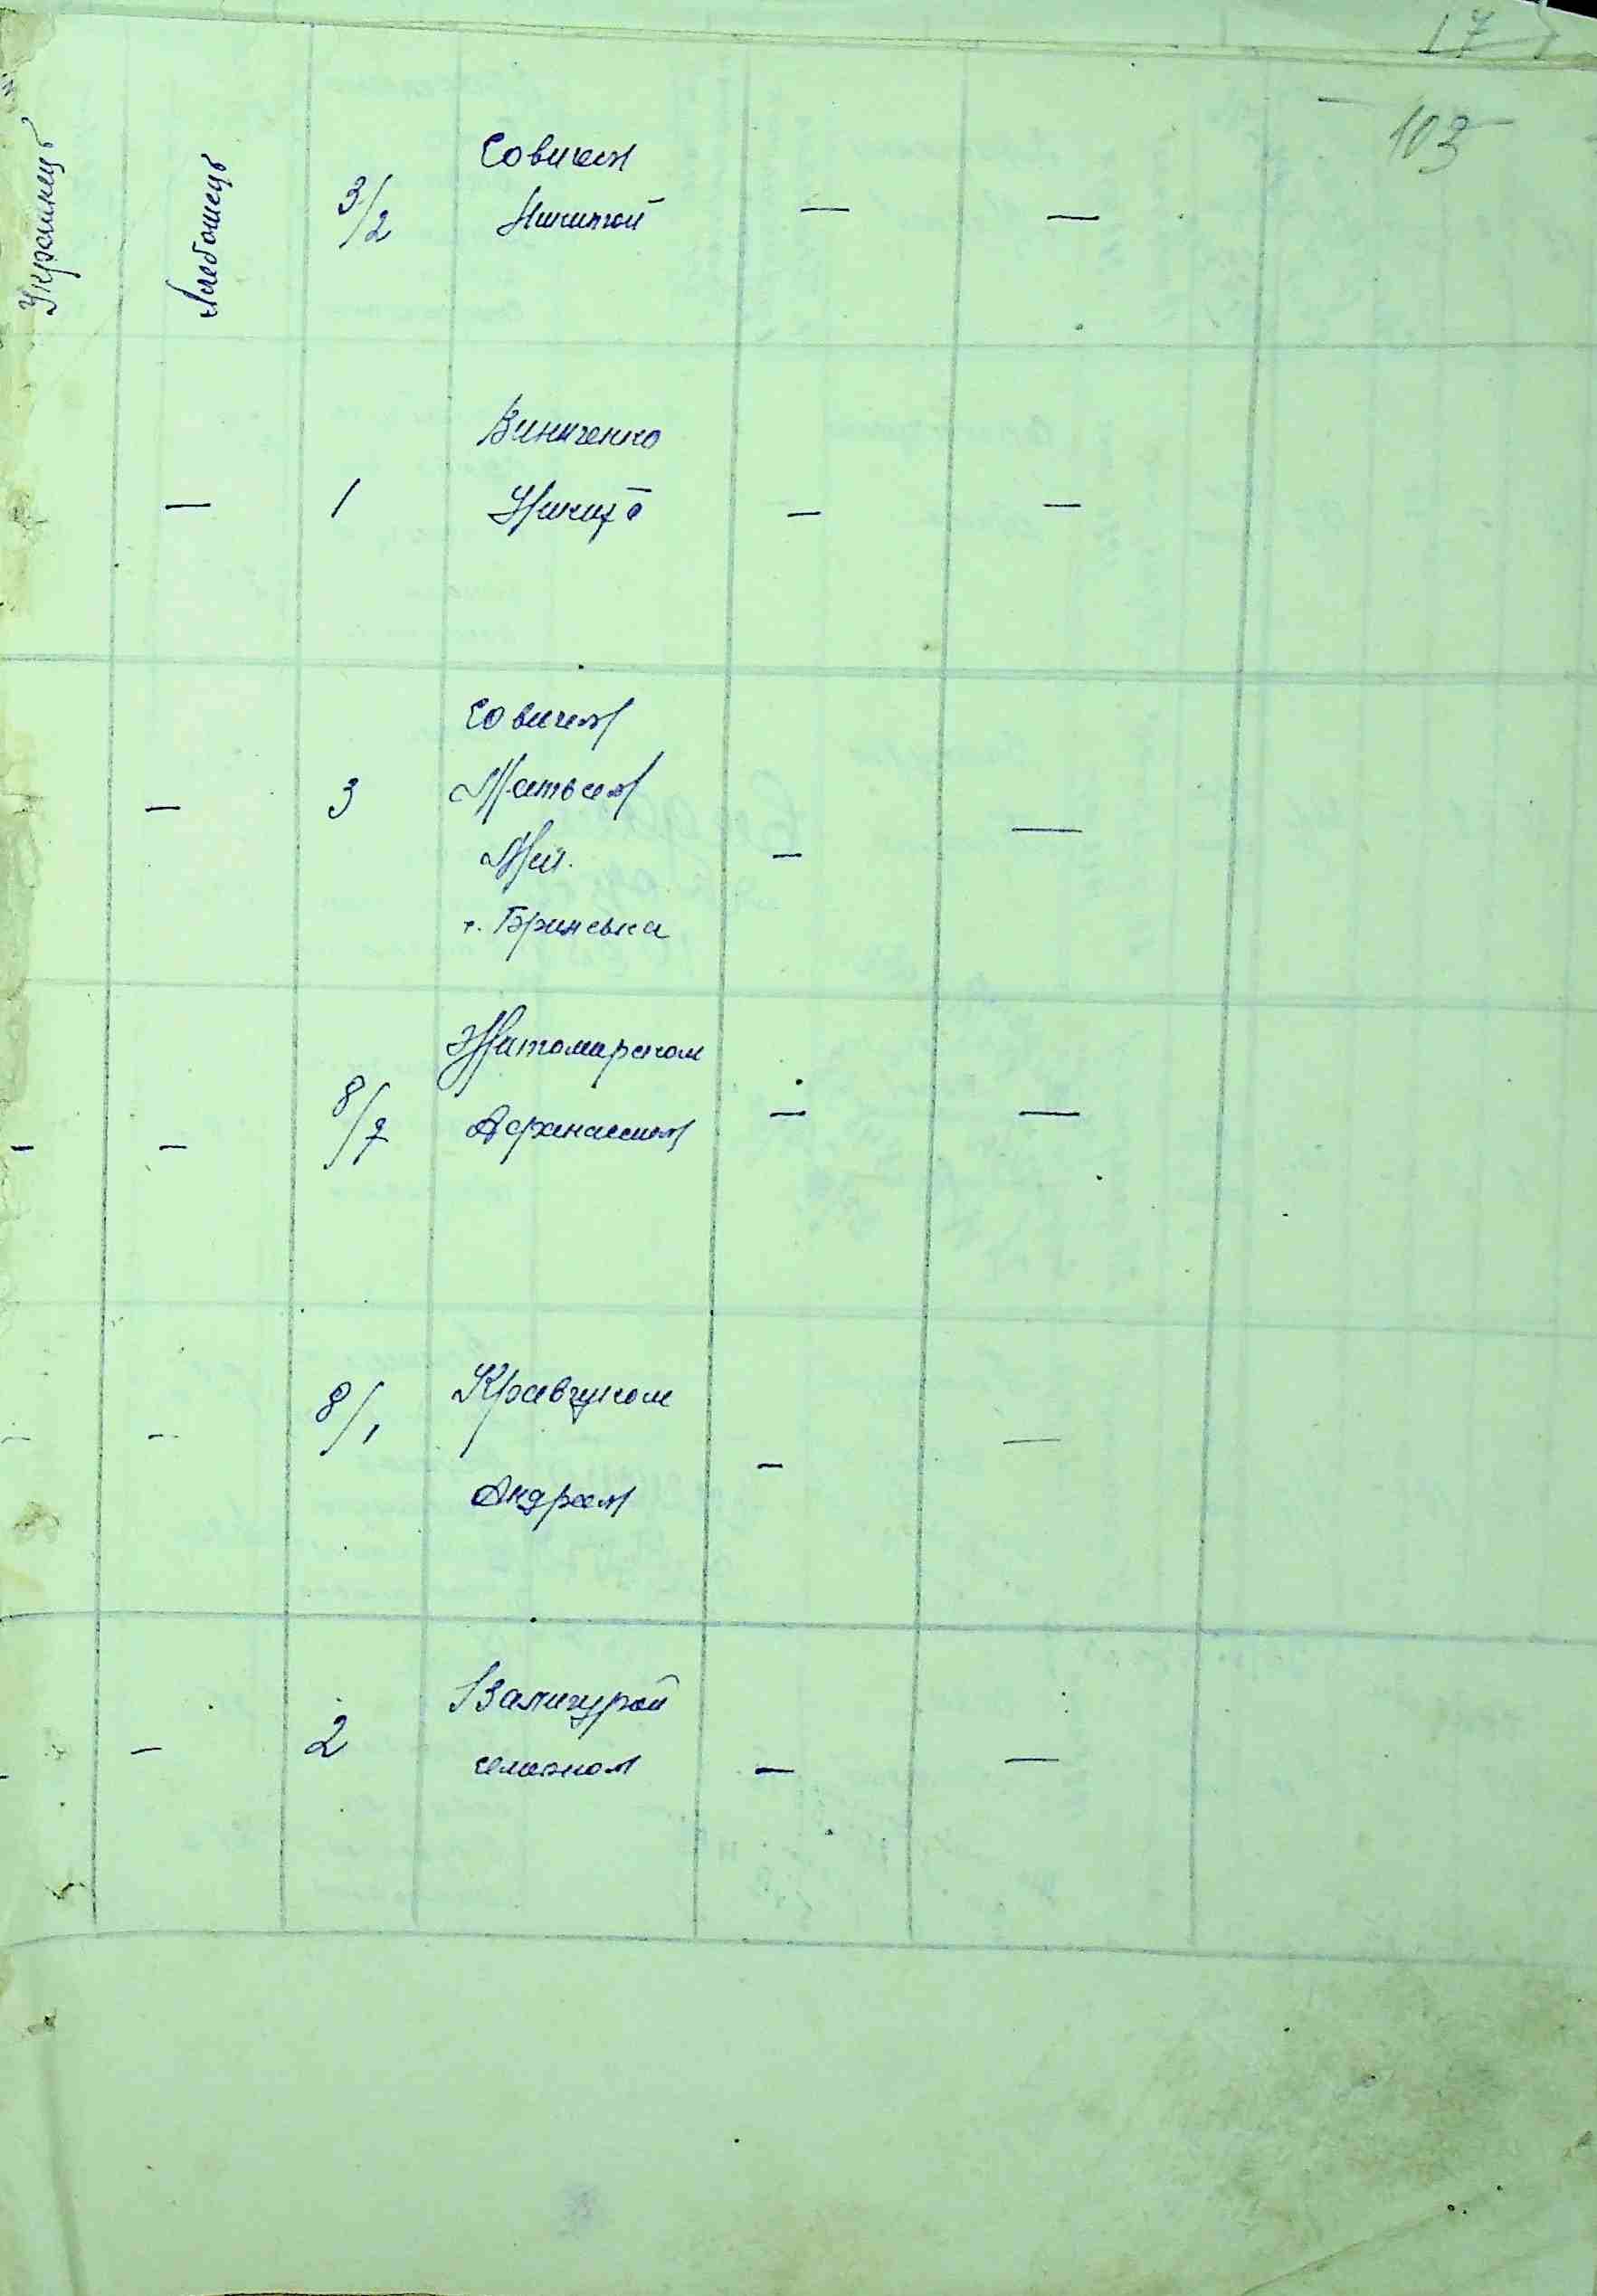 17
103
Украинецъ
Хлебопашецъ
3/2
Совичем
Никитой
—
—
—
1
Виниченко
Никита
—
—
—
3
Совичем
Матвеем
—
—
с. Бринська
—
—
8/7
Житомирском
Афанасием
—
—
—
8/1
Кравчуком
Андреем
—
—
—
2
Валигурой
Семеном
—
—